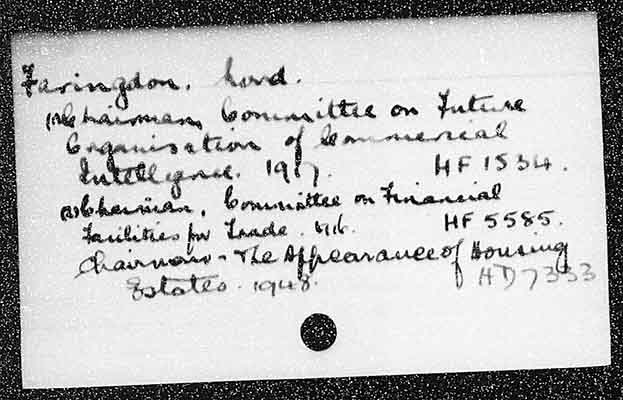 Faringdon, Lord.
(1) Chairman, Committee on Future
Organisation of Commercial
Intelligence. 1917. HF 1534.
(2) Chairman, Committee on Financial
Facilities for Trade. 1916. HF 5585.
Chairman - The Appearance of Housing
Estates. 1948. HD 7333